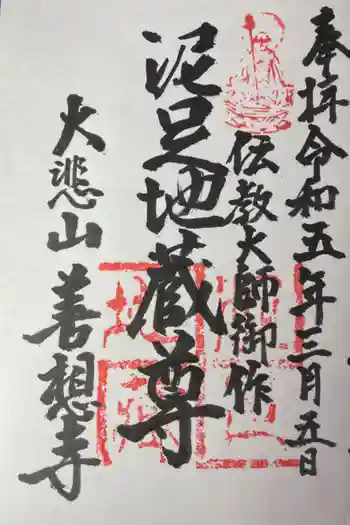 奉拝 令和五年三月五日
伝教大師御作
泥足地蔵尊
大悲山 善想寺